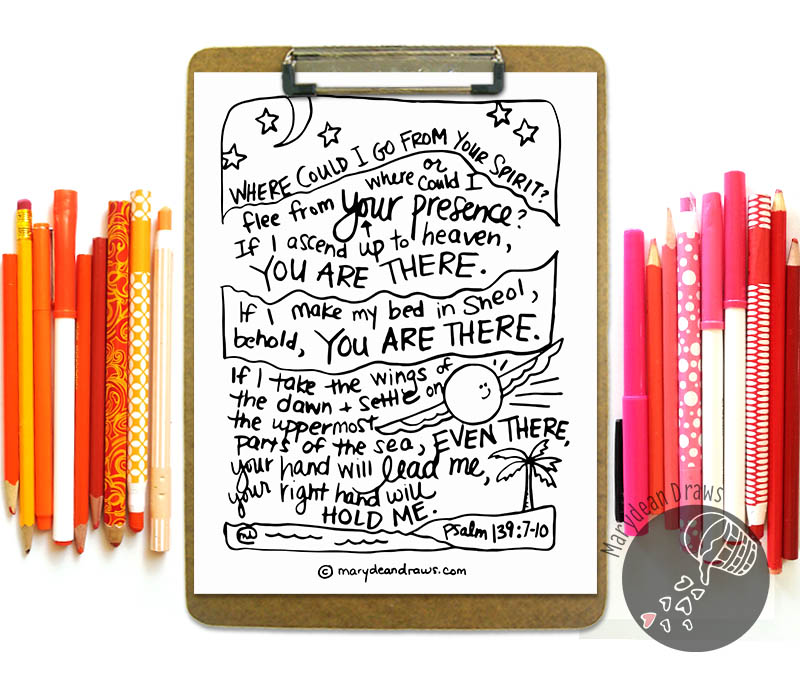 WHERE COULD I GO FROM YOUR SPIRIT?
or
where could I
flee from your presence?
If I ascend up to heaven,
YOU ARE THERE.
If I make my bed in Sheol,
behold, YOU ARE THERE.
If I take the wings of
the dawn + settle on
the uppermost
parts of the sea, EVEN THERE,
your hand will lead me,
your right hand will
HOLD ME.
Psalm 139:7-10
© marydeandraws.com
Marydean Draws